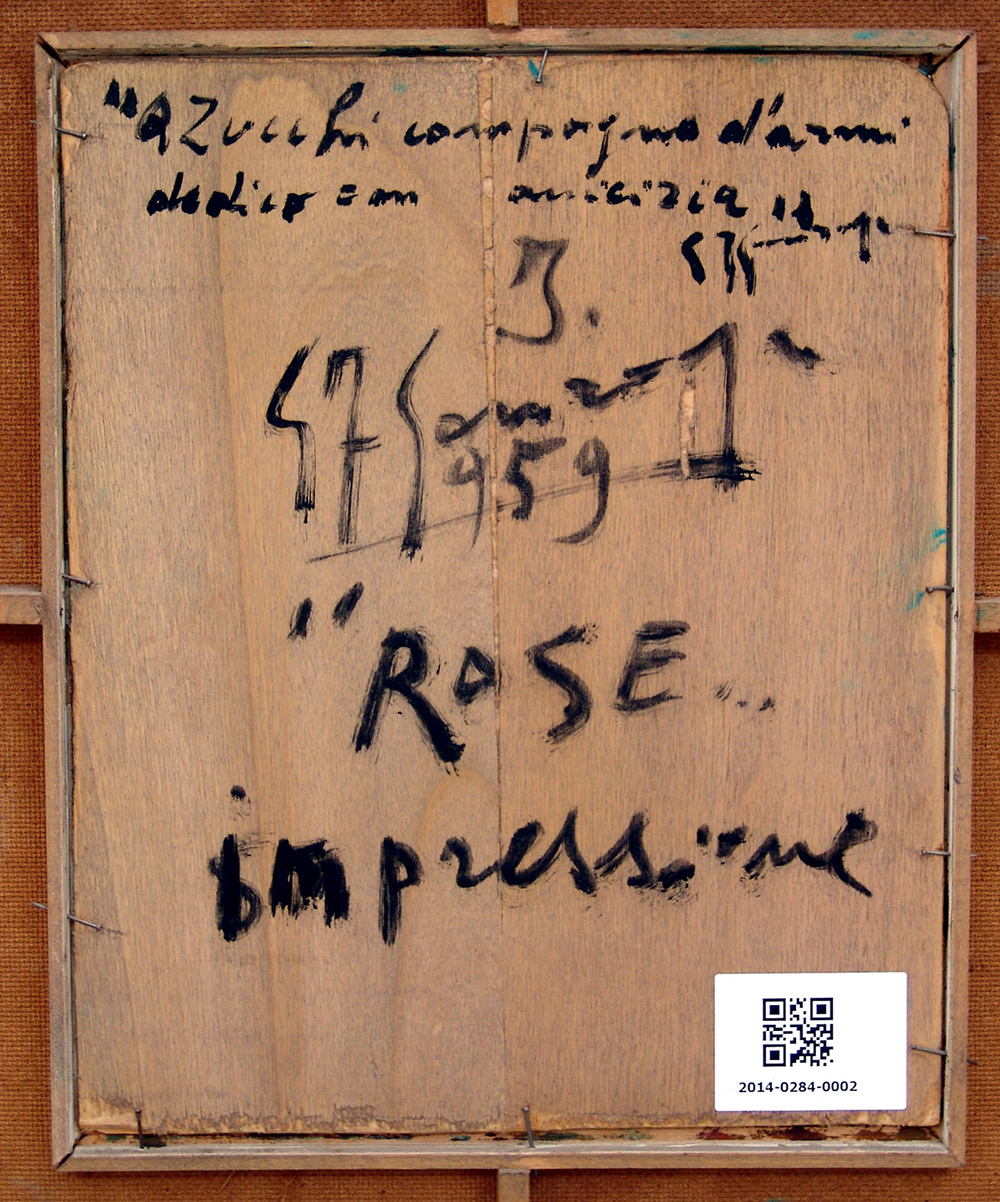 "A Zucchi compagno d'armi
dedico con amicizia
J.
959
"ROSE...
impressione
2014-0284-0002